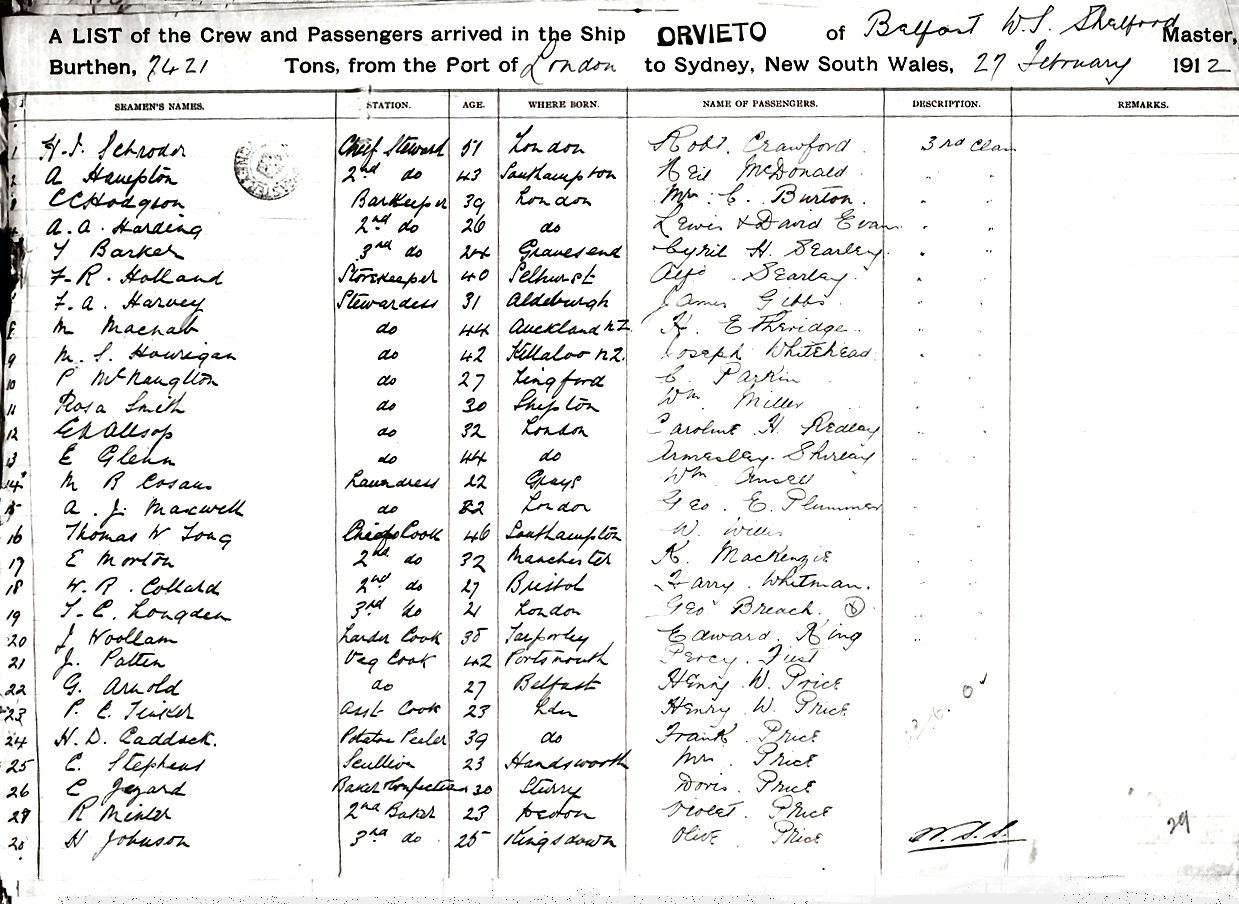 A LIST of the Crew and Passengers arrived in the Ship ORVIETO of Belfast W. S. Shelford Master,
Burthen, 7421 Tons, from the Port of London to Sydney, New South Wales, 27 February 1912
SEAMEN'S NAMES. STATION. AGE. WHERE BORN. NAME OF PASSENGERS. DESCRIPTION. REMARKS.
1 H. J. Schroder Chief Steward 51 London Robt. Crawford 3rd Class
2 A Hampton 2nd do 43 Southampton Neil McDonald " "
3 C C Hodgson Barkeeper 39 London Mrs. C. Burton " "
4 A. A. Harding 2nd do 26 do Lewis & David Evans " "
Barker 3rd do 24 Gravesend Cyril H. Searley " "
F. R. Holland Storekeeper 40 Selhurst Alf. Searley " "
F. A. Harvey Stewardess 31 Aldeburgh James Gibbs " "
8 M Macnab do 44 Auckland NZ H. Etheridge " "
9 M. S. Hourigan do 42 Killaloo NZ. Joseph Whitehead " "
10 P McNaughton do 27 Lingford C. Parkin " "
11 Rosa Smith do 30 Shipton Wm. Miller " "
12 E A Allsop do 32 London Caroline H. Redley " "
13 E Glenn do 44 do Armesley. Shirley " "
14 M B Cosans Laundress 22 Grays Wm Ansell " "
15 A. J. Maxwell do London Geo. E. Plummer " "
16 Thomas W Long Chief Cook 46 Southampton W. Willis " "
17 E Morton 2nd do 32 Manchester K. MacKenzie " "
18 W. R. Collard 2nd do 27 Bristol Harry. Whitman. " "
19 T. C. Longden 3rd do 21 London Geo Breach. " "
20 J Woollam Larder Cook 35 Tarporley Edward. King " "
21 J. Patten Veg Cook 42 Portsmouth Percy.
22 G. Arnold do 27 Belfast Henry W. Price
23 P. E. Tinker Asst Cook 23 Ldn Henry W. Price
24 H. D. Caddock. Potatoe Peeler 39 do Frank Price
25 C. Stephens Scullion 23 Handsworth Mrs Price
26 E Jezard Baker & Confectioner 30 Sturry Doris. Price
27 R Minter 2nd Baker 23 Violet. Price
28 H Johnson 3rd do 25 Kingsdown Olive Price W. S. S.
29